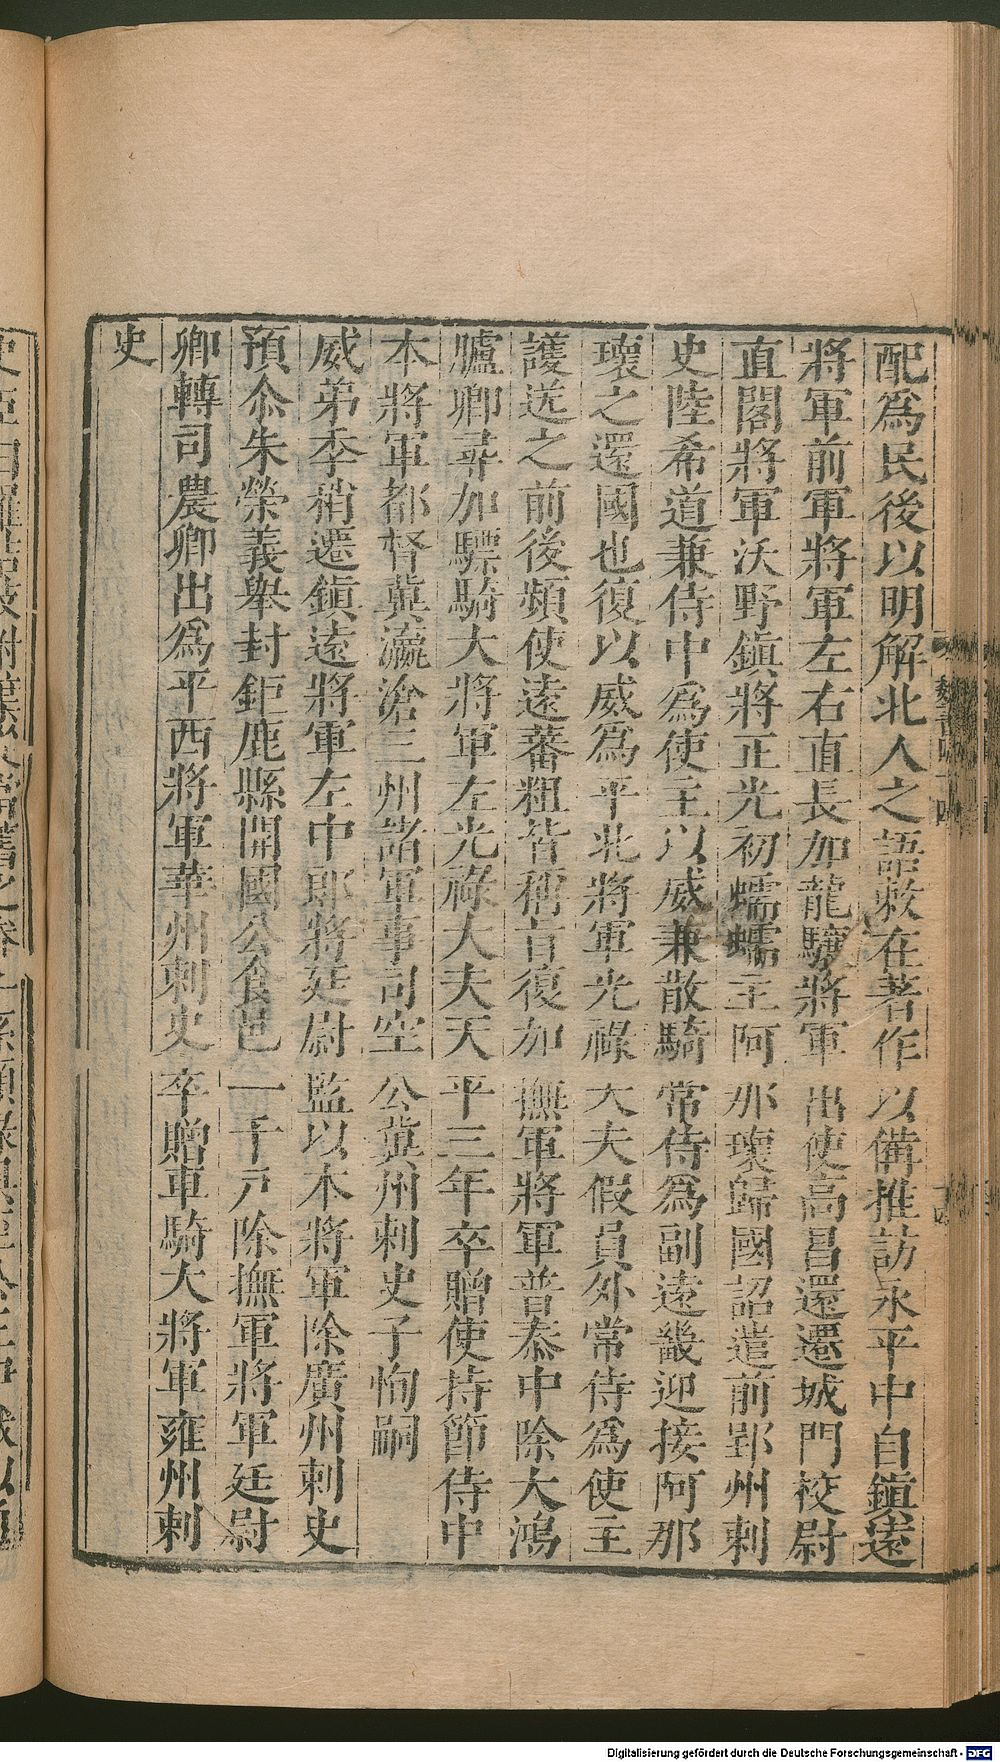 配爲民後以明解北人之語敕在著作以備推訪永平中自鎮遠
將軍前軍將軍左右直長加龍驤將軍出使高昌還遷城門校尉
直閤將軍沃野鎮將正光初蠕蠕主阿那瓌歸國詔遣前郢州刺
史陸希道兼侍中爲使主以威兼散騎常侍爲副遠畿迎接阿那
瓌之還國也復以威爲平北將軍光祿大夫假員外常侍爲使主
護送之前後頻使遠蕃粗皆稱旨復加撫軍將軍普泰中除大鴻
臚卿尋加驃騎大將軍左光祿大夫天平三年卒贈使持節侍中
本將軍都督冀瀛滄三州諸軍事司空公冀州刺史子恂嗣
威弟季稍遷鎮遠將軍左中郎將廷尉監以本將軍除廣州刺史
預尒朱榮義舉封鉅鹿縣開國公食邑一千戸除撫軍將軍廷尉
卿轉司農卿出爲平西將軍華州刺史卒贈車騎大將軍雍州刺
史
Digitalisierung gefördert durch die Deutsche Forschungsgemeinschaft - DFG